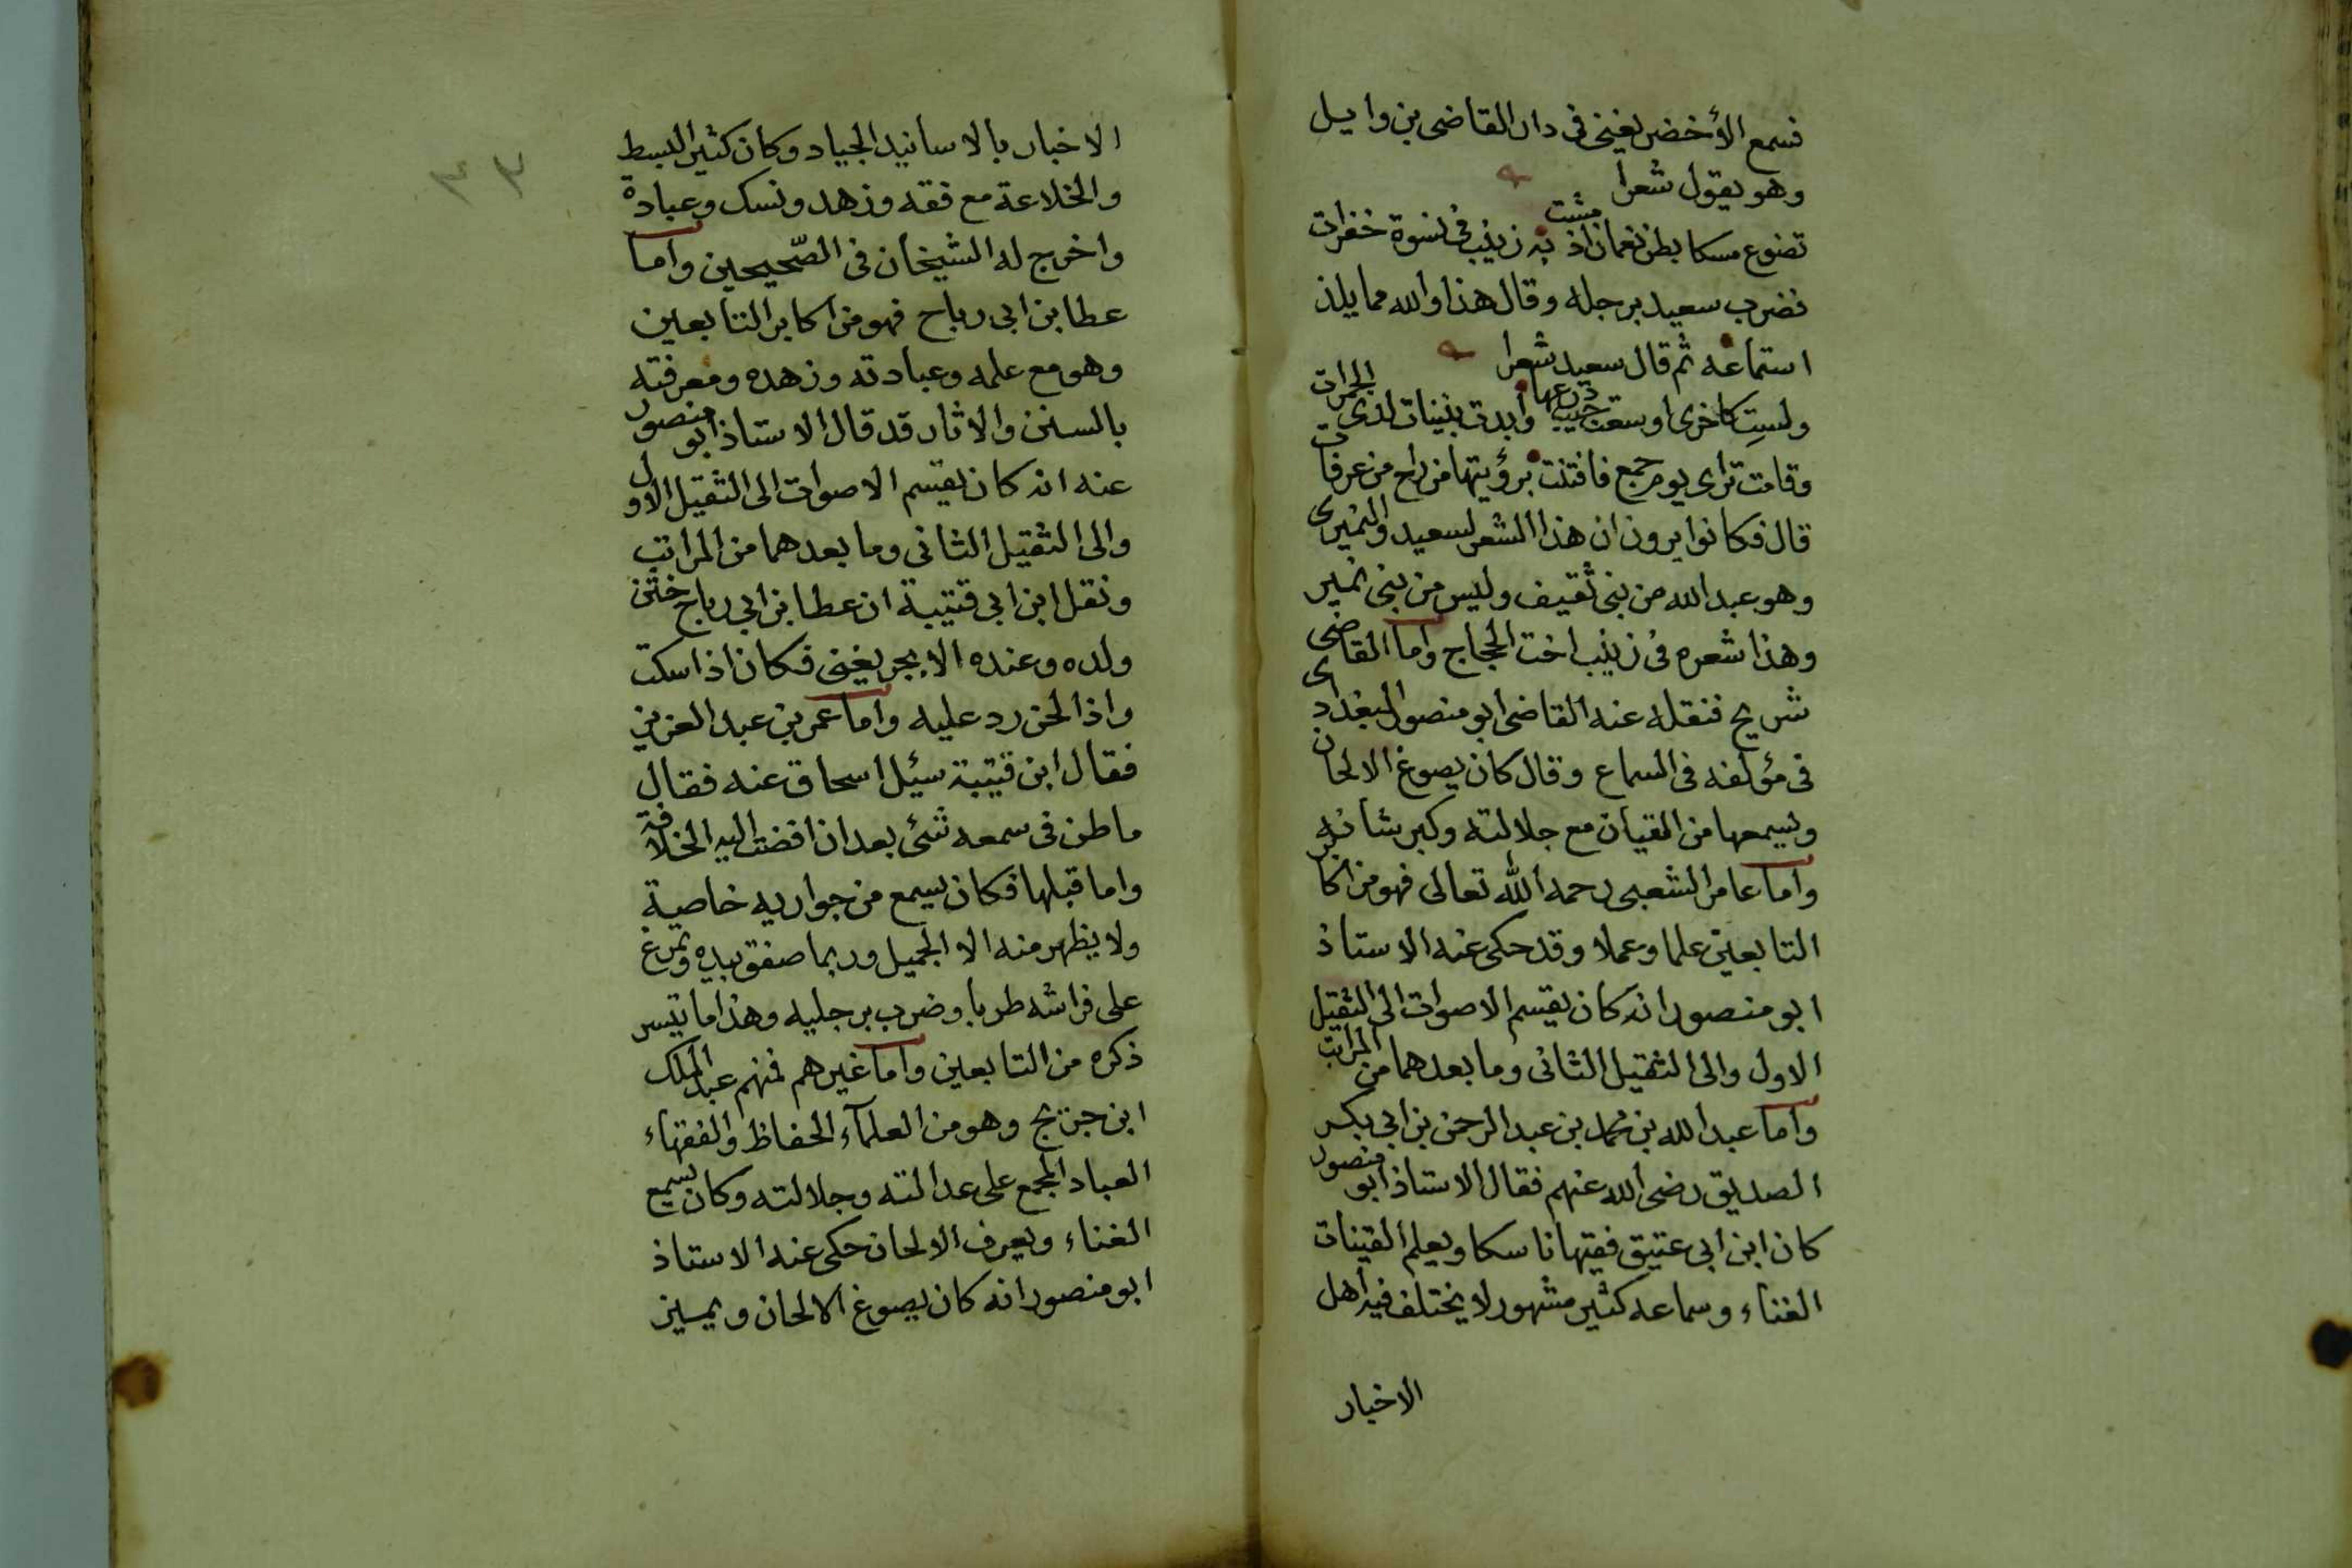 فسمع الأخضر يغنى فى دار القاضى بن وايل
وهو يقول شعرا
تضوع مسكا بطن نعمان اذ مشت به زينب فى نسوة خفرات
فضرب سعيد برجله وقال هذا والله مما يلذ
استماعه ثم قال سعيد شعرا
ولست كاخرى اوسعت جيب درعها وأبدت بنينات لدى الجمرات
وقامت ترأى يوم جمع فافتنت برؤيتها من راح من عرفات
قال فكانوا يرون ان هذا الشعر لسعيد والنميرى
وهو عبد الله من بنى ثقيف وليس من بنى نمير
وهذا شعره فى زينب اخت الحجاج واما القاضى
شريح فنقله عنه القاضى ابو منصور البغدادى
فى مؤلفه فى السماع وقال كان يصوغ الالحان
ويسمعها من القيان مع جلالته وكبر شانه
واما عامر الشعبى رحمه الله تعالى فهو من اكابر
التابعين علما وعملا وقد حكى عنه الاستاذ
ابو منصور انه كان يقسم الاصوات الى الثقيل
الاول والى الثقيل الثانى وما بعدهما من المراتب
واما عبد الله بن محمد بن عبد الرحمن بن ابى بكر
الصديق رضى الله عنهم فقال الاستاذ ابو منصور
كان ابن ابى عتيق فقيها ناسكا ويعلم القينات
الغناء وسماعه كثير مشهور لا يختلف فيه اهل
الاخبار
٣٣
الاخبار بالاسانيد الجياد وكان كثير البسط
والخلاعة مع فقه وزهد ونسك وعبادة
واخرج له الشيخان فى الصّحيحين واما
عطا بن ابى رباح فهو من اكابر التابعين
وهو مع علمه وعبادته وزهده ومعرفته
بالسنن والاثار قد قال الاستاذ ابو منصور
عنه انه كان يقسم الاصوات الى الثقيل الاول
والى الثقيل الثانى وما بعدهما من المراتب
ونقل ابن ابى قتيبة ان عطا بن ابى رباح ختن
ولده وعنده الابجر يغنى فكان اذا سكت
واذا لحن رد عليه واما عمر بن عبد العزيز
فقال ابن قتيبة سئيل اسحاق عنه فقال
ما طن فى سمعه شئ بعد ان افضت اليه الخلافة
واما قبلها فكان يسمع من جواريه خاصية
ولا يظهر منه الا الجميل وربما صفق بيديه وتمرغ
على فراشه طربا وضرب برجليه وهذا ما تيسر
ذكره من التابعين واما غيرهم فمنهم عبد الملك
ابن جريج وهو من العلمآء الحفاظ والفقهاء
العباد المجمع على عدالته وجلالته وكان يسمع
الغناء ويعرف الالحان حكى عنه الاستاذ
ابو منصور انه كان يصوغ الالحان ويميز